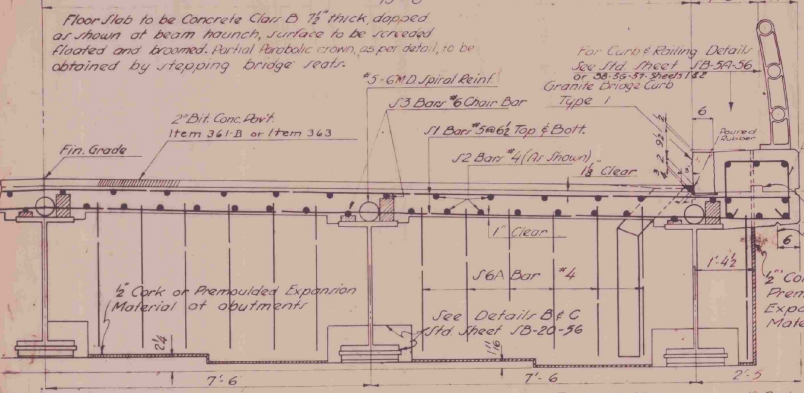 Floor Slab to be Concrete Class B 7½" thick, dapped
as shown at beam haunch, surface to be screeded
floated and broomed. Partial Parabolic crown, as per detail, to be
obtained by stepping bridge seats.
For Curb & Railing Details
See Std Sheet SB-5A-56
or SB-5G-57-Sheets 1&2
Granite Bridge Curb
Type 1
#5-GMD. Spiral Reinf.
S3 Bars #6 Chair Bar
2" Bit. Conc. Pav't.
Item 361-B or Item 363
S1 Bars #5@6½ Top & Bott.
S2 Bars #4 (As Shown)
Fin. Grade
6
Poured
Rubber
1½ Clear
1" Clear
6
S6A Bar #4
1'-4½
½" Cork or Premoulded Expansion
Material at abutments
See Details B & C
Std Sheet SB-20-56
½" Cor
Prem
Expa
Mate
2¼
1 1/16
7'-6
7'-6
2'-5